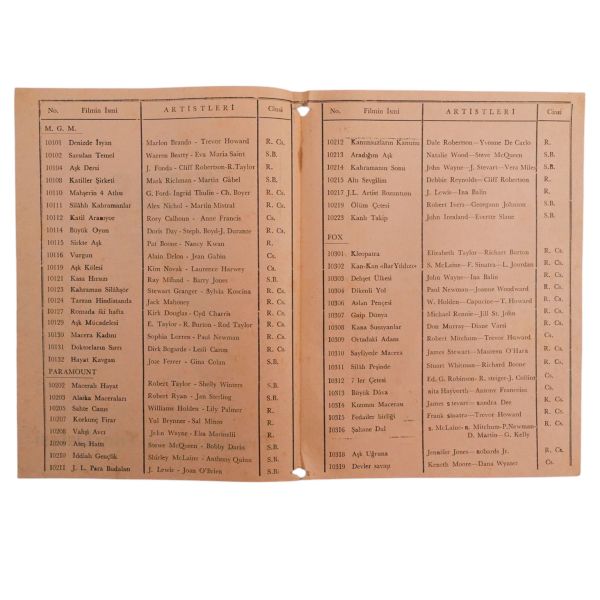 No. Filmin İsmi ARTİSTLERİ Cinsi
M. G. M.
10101 Denizde İsyan Marlon Brando - Trevor Howard R. Cs.
10102 Sarsılan Temel Warren Beatty - Eva Maria Saint S.B.
10104 Aşk Dersi J. Fonda - Cliff Robertson-R.Taylor R.
10108 Katiller Şirketi Mark Richman - Martin Gabel S.B.
10110 Mahşerin 4 Atlısı G. Ford- Ingrid Thulin - Ch. Boyer R. Cs.
10111 Silâhlı Kahramanlar Alex Nichol - Martin Mistral R. Cs.
10112 Katil Aranıyor Rory Calhoun - Anne Francis Cs.
10114 Büyük Oyun Doris Day - Steph. Boyd-J. Durante R. Cs.
10115 Sirkte Aşk Pat Boone - Nancy Kwan R.
10116 Vurgun Alain Delon - Jean Gabin Cs.
10119 Aşk Kölesi Kim Novak - Laurence Harvey Cs.
10121 Kasa Hırsızı Ray Milland - Barry Jones S.B.
10123 Kahraman Silâhşör Stewart Granger - Sylvia Koscina R. Cs.
10124 Tarzan Hindistanda Jack Mahoney R. Cs.
10127 Romada iki hafta Kirk Douglas - Cyd Charris R. Cs.
10129 Aşk Mücadelesi E. Taylor - R. Burton - Rod Taylor R. Cs.
10130 Macera Kadını Sophia Lorren - Paul Newman R. Cs.
10131 Doktorların Sırrı Dick Bogarde - Lesli Caron R. Cs.
10132 Hayat Kavgası Jose Ferrer - Gina Colan S.B.
PARAMOUNT
10202 Maceralı Hayat Robert Taylor - Shelly Winters S.B.
10203 Alaska Maceraları Robert Ryan - Jan Sterling S.B.
10205 Sahte Casus Williams Holden - Lily Palmer R.
10207 Korkunç Firar Yul Brynner - Sal Mineo R.
10208 Vahşi Avcı John Wayne - Elsa Martinelli R.
10209 Ateş Hattı Steve McQueen - Bobby Darin S.B.
10210 İddialı Gençlik Shirley McLaine - Anthony Quinn S.B.
10211 J. L. Para Budalası J. Lewis - Joan O'Brien S.B.
No. Filmin İsmi ARTİSTLERİ Cinsi
10212 Kanunsuzların Kanunu Dale Robertson—Yvonne De Carlo R.
10213 Aradığım Aşk Natalie Wood - Steve McQueen S.B.
10214 Kahramanın Sonu John Wayne—J. Stewart—Vera Miles S.B.
10215 Altı Sevgilim Debbie Reynolds—Cliff Robertson R.
10217 J.L. Artist Bozuntusu J. Lewis—Ina Balin R.
10219 Ölüm Çetesi Robert Ivers—Georgann Johnson S.B.
10223 Kanlı Takip John Ireland—Everter Slane S.B.
FOX
10301 Kleopatra Elizabeth Taylor—Richart Burton R. Cs.
10302 Kan-Kan «BarYıldızı» S. McLaine—F. Sinatra—L. Jourdan R. Cs.
John Wayne—Ina Balin R. Cs.
10304 Dikenli Yol Paul Newman—Joanne Woodward R. Cs.
10306 Aslan Pençesi W. Holden—Capucine—T. Howard R. Cs.
10307 Gaip Dünya Michael Rennie—Jill St. John R. Cs.
10308 Kana Susıyanlar Don Murray—Diane Varsi R. Cs.
10309 Ortadaki Adam Robert Mitchum—Trevor Howard Cs.
10310 Sayfiyede Macera James Stewart—Maureen O'Hara R. Cs.
10311 Silâh Peşinde Stuart Whitman—Richard Boone R. Cs.
10312 7 ler Çetesi Ed. G. Robinson- R. steiger-J. Collins Cs.
10313 Büyük Dâva Rita Hayworth—Antony Franciosa Cs.
10314 Kızımın Macerası James stevart—sandra Dee R. Cs.
10315 Fedailer birliği Frank sinatra—Trevor Howard R. Cs.
10316 Şahane Dul s. McLaine- R. Mitchum-P.Newman- R. Cs.
D. Martin—G. Kelly
10318 Aşk Uğruna Jennifer Jones—Robards Jr. R. Cs.
10319 Devler savaşı Keneth Moore—Dana Wynter Cs.